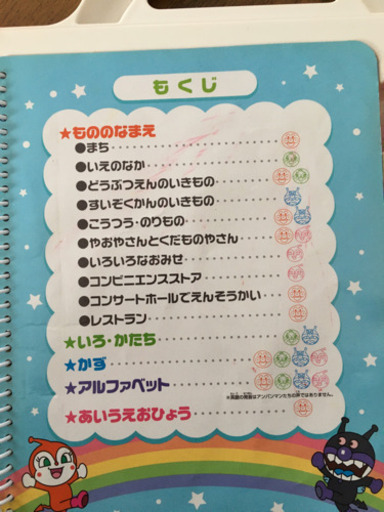 もくじ
★もののなまえ
●まち
●いえのなか
●どうぶつえんのいきもの
●すいぞくかんのいきもの
●こうつう・のりもの
●やおやさんとくだものやさん
●いろいろなおみせ
●コンビニエンスストア
●コンサートホールでえんそうかい
●レストラン
★いろ・かたち
★かず
★アルファベット
※英語の発音はアンパンマンたちの声ではありません。
★あいうえおひょう